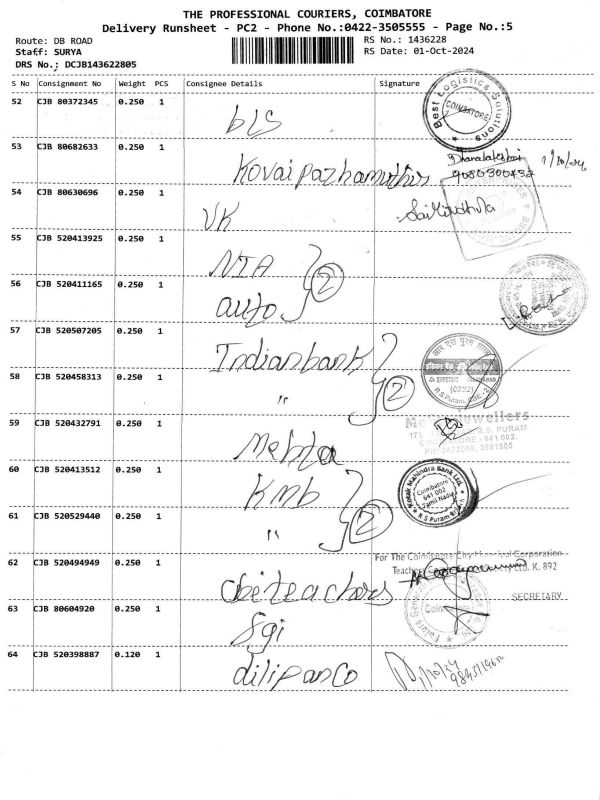 THE PROFESSIONAL COURIERS, COIMBATORE
Delivery Runsheet - PC2 - Phone No.:0422-3505555 - Page No.:5
Route: DB ROAD
RS No.: 1436228
Staff: SURYA
RS Date: 01-Oct-2024
DRS No.; DCJB143622805
S No Consignment No Weight PCS Consignee Details Signature
52 CJB 80372345 0.250 1 bls
Best Logistics Solutions
COIMBATORE
53 CJB 80682633 0.250 1 Kovai pazhamuthir
Dhanalakshmi 1/10/24
54 CJB 80630696 0.250 1 VK
COIMBATORE
55 CJB 520413925 0.250 1 NIA
2
56 CJB 520411165 0.250 1 auto
57 CJB 520507205 0.250 1 Indianbank
58 CJB 520458313 0.250 1 "
2
59 CJB 520432791 0.250 1 Mehta
R.S. PURAM
60 CJB 520413512 0.250 1 KMB
Kotak Mahindra Bank Ltd.
Coimbatore
641 002
Tamil Nadu
R S Puram Branch
61 CJB 520529440 0.250 1 "
2
62 CJB 520494949 0.250 1 cbeiteachers
For The Coimbatore City Municipal Corporation
Ltd. K. 892
SECRETARY
63 CJB 80604920 0.250 1 Sgi
Coimbatore
64 CJB 520398887 0.120 1 dilipanCo
1/10/24